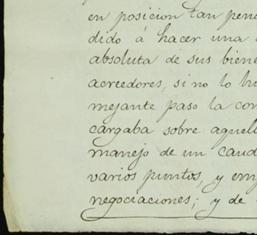 en posicion tan pen
dido á hacer una
absoluta de sus bien
acreedores, si no lo hi
mejante paso la con
cargaba sobre aquel
manejo de un caud
varios puntos, y em
negociaciones; y de